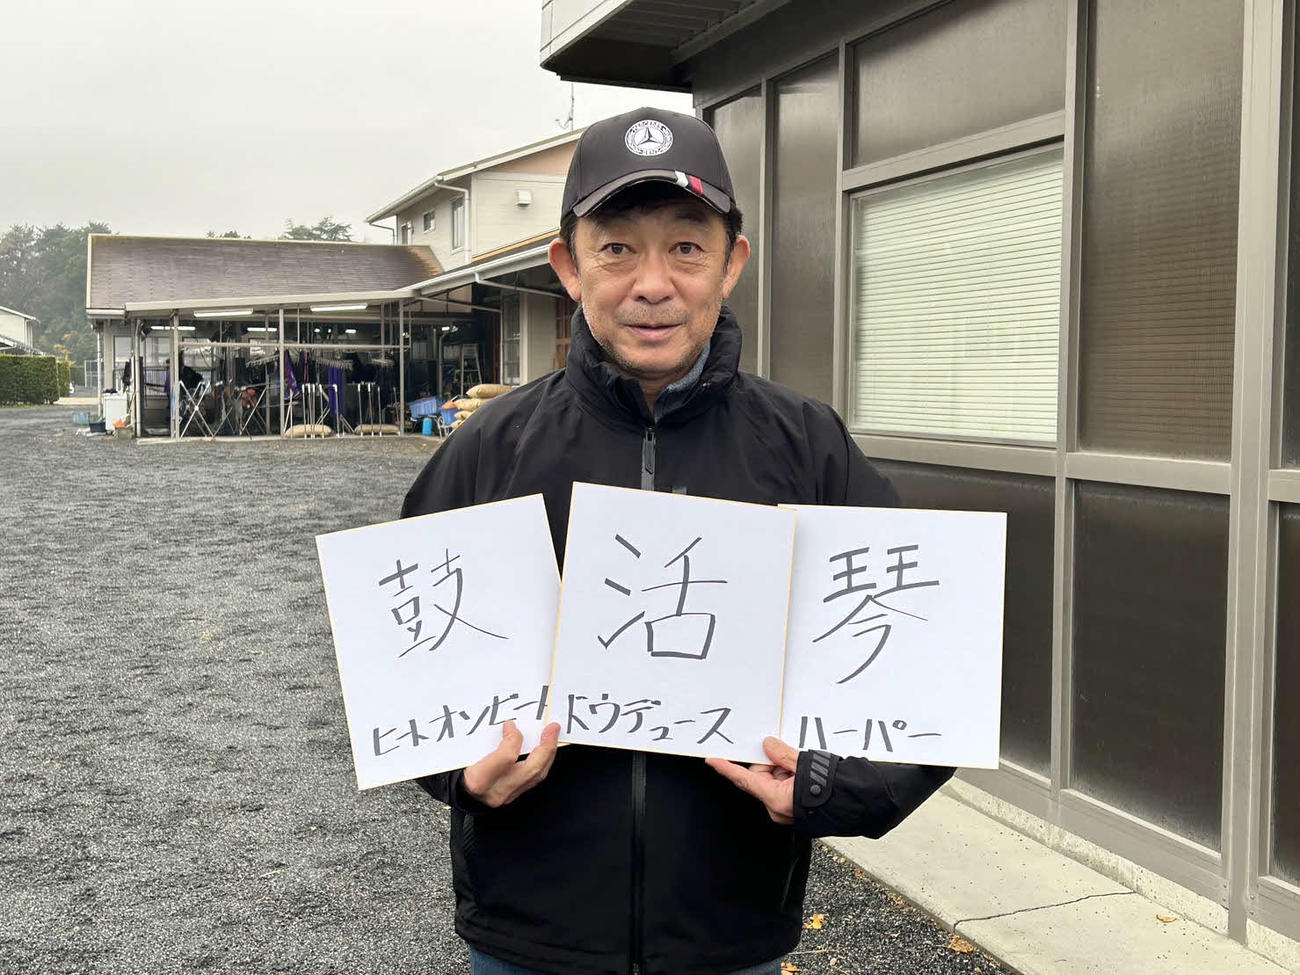 鼓
ヒートオンビート
活
ドウデュース
琴
ハーパー